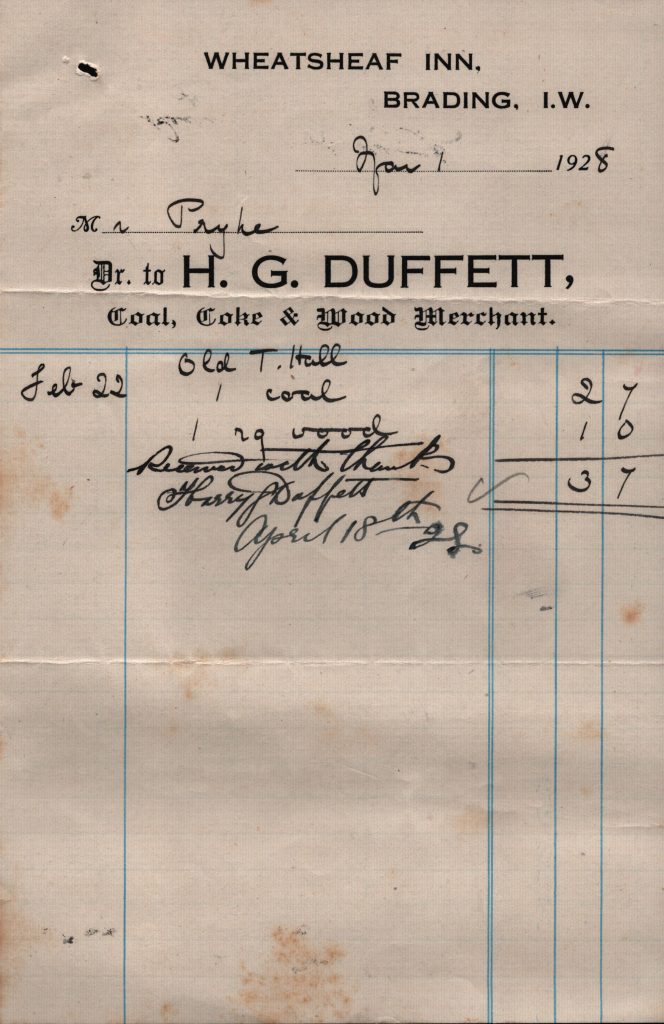 WHEATSHEAF INN,
BRADING, I.W.
1 1928
Mr Pryke
Dr. to H. G. DUFFETT,
Coal, Coke & Wood Merchant.
Old T. Hall
Feb 22 1 coal 2 7
1 wood 1 0
3 7
Received with thanks
Harry Duffett
April 18th 28